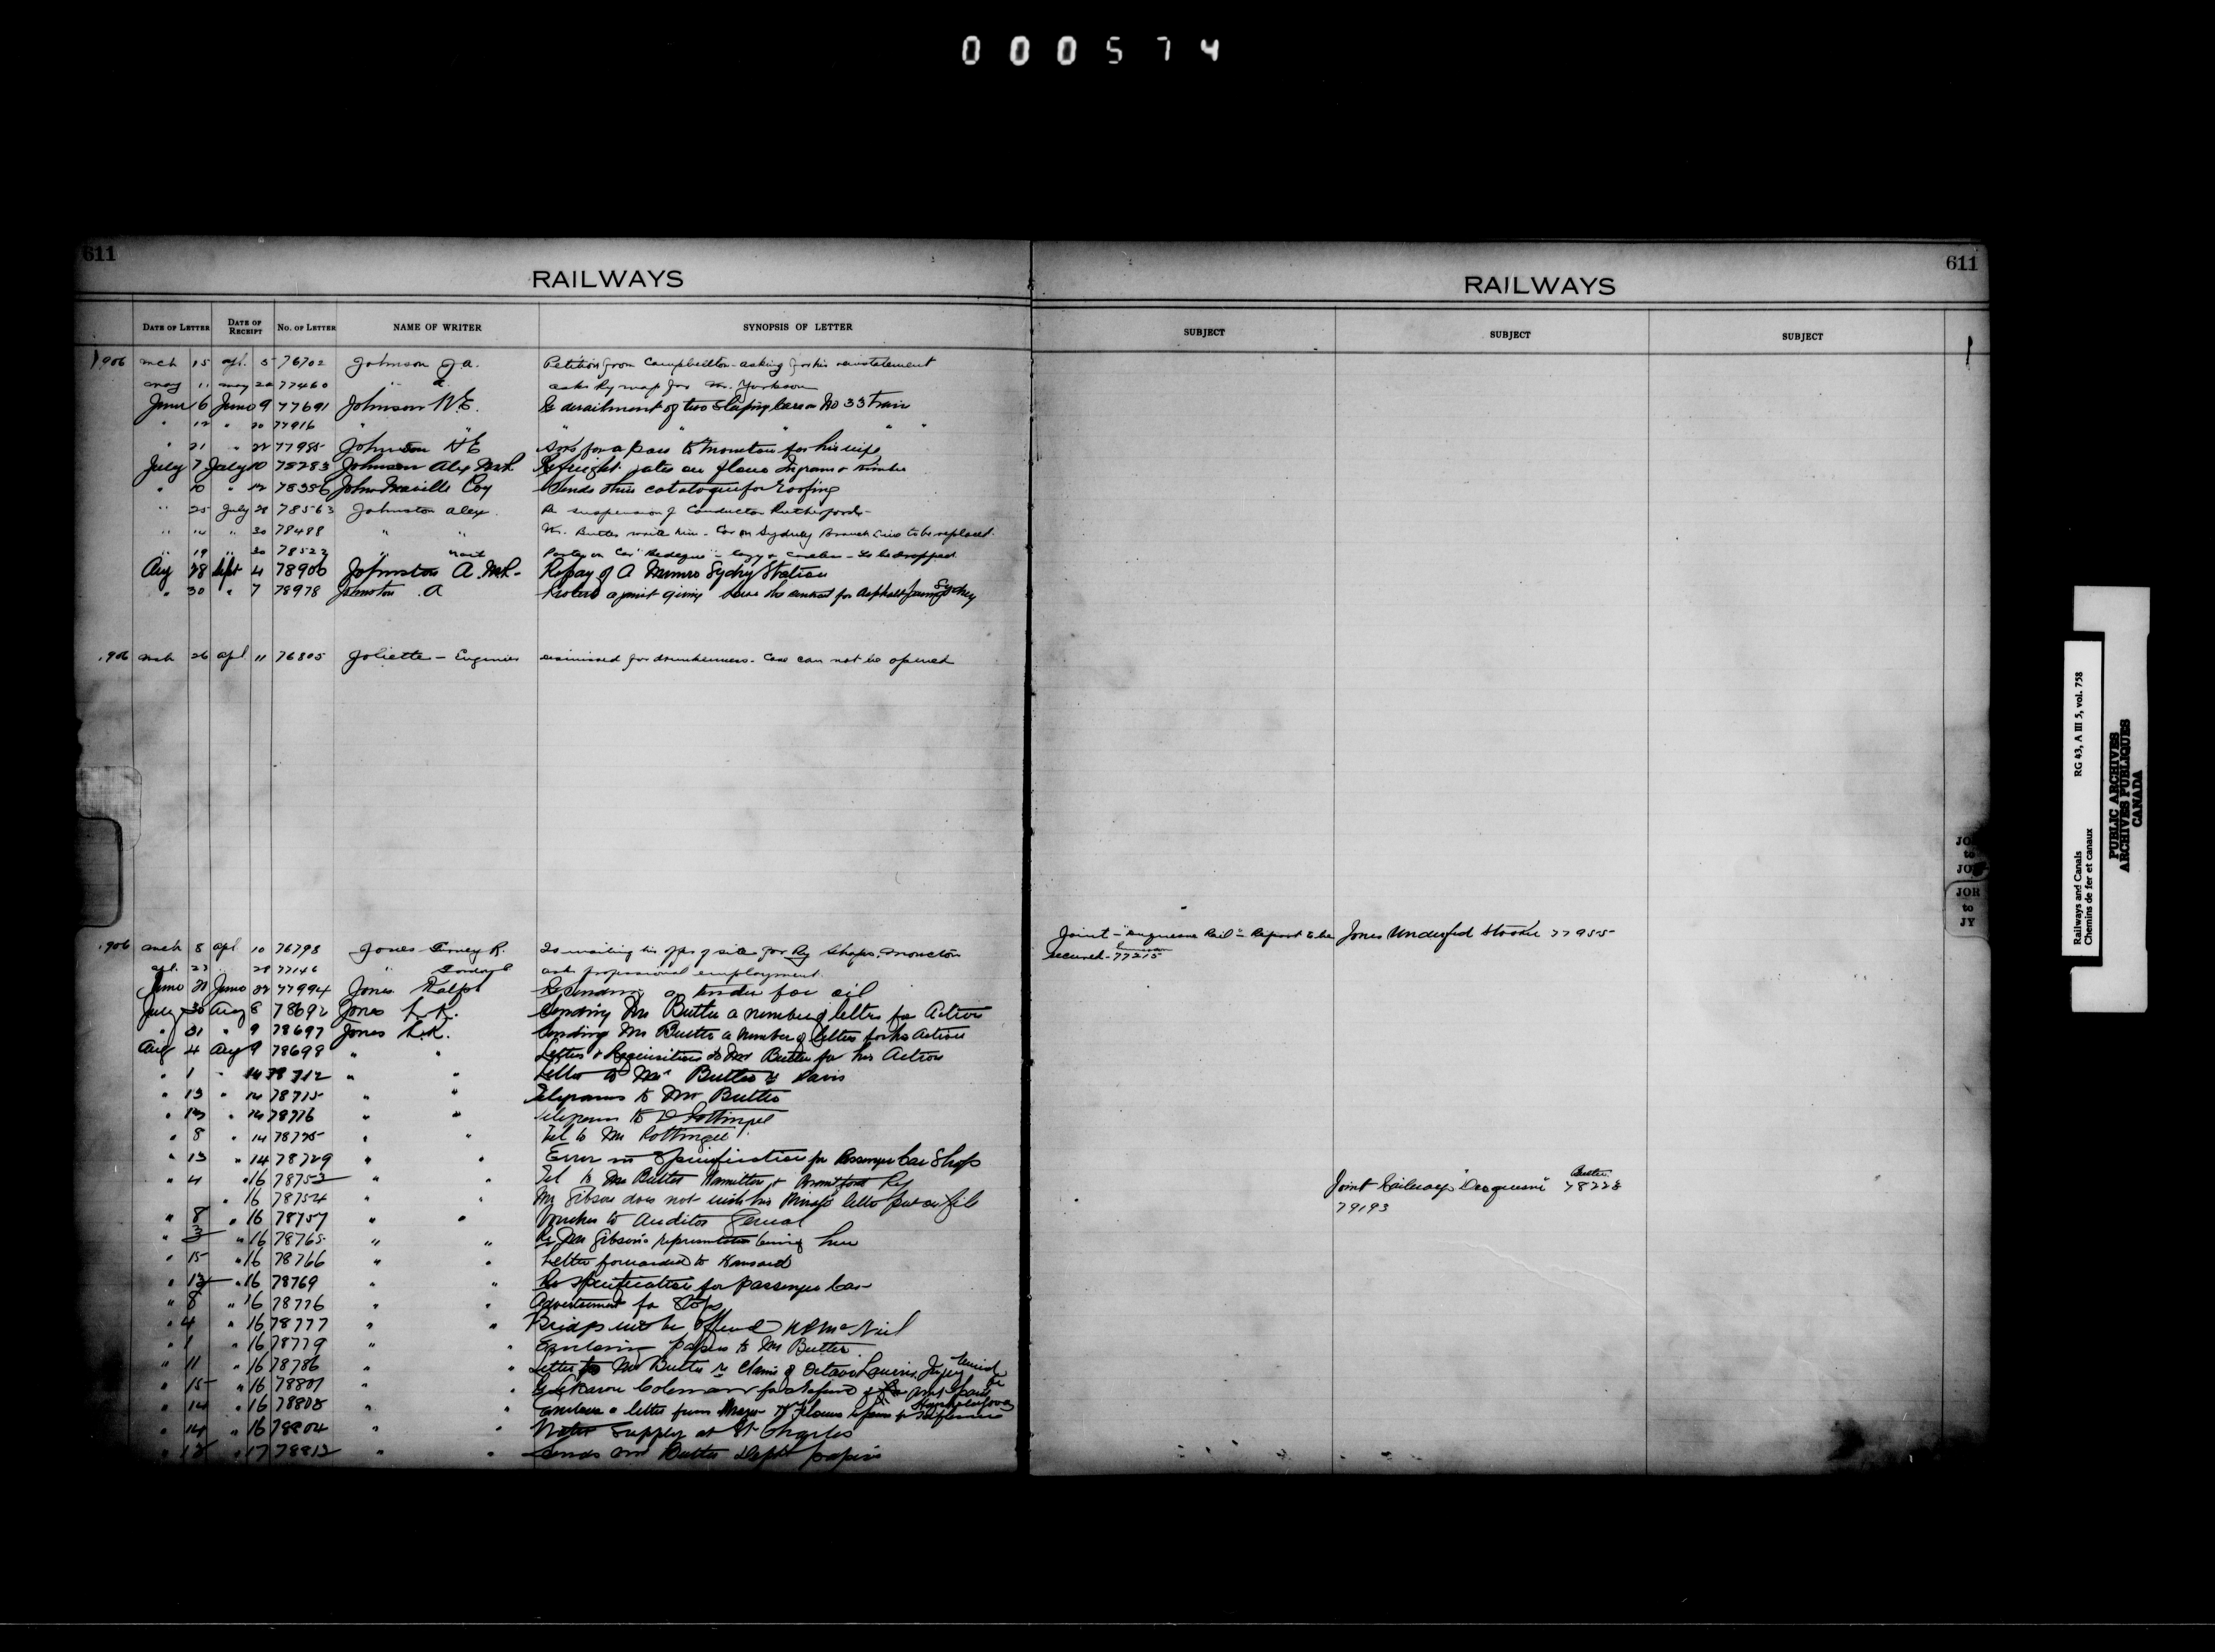 000574
611
RAILWAYS
DATE OF LETTER DATE OF RECEIPT No. OF LETTER NAME OF WRITER SYNOPSIS OF LETTER
1906 mch 15 apl. 5 76702 Johnson J a. Petition from Campbellton - asking for his reinstatement
may 11 may 22 77460 " a asks Ry map for Mr.
June 6 June 9 77691 Johnson W.E. Re derailment of two Sleeping cars on No 33 train
" 12 " 20 77916 " " " " "
" 21 " 22 77985 Johnson H E asks for a pass to Moncton for his wife
July 7 July 10 78283 Johnson Alex M.P. Re freight rates on flour Ingram &
" 10 " 12 78356 John Manville Coy Sends their catalogue for roofing
" 25 July 28 78563 Johnston Alex. Re suspension of Conductor Rutherford -
" 14 " 30 78488 " " Mr. Butler write him - Car on Sydney Branch Line to be replaced.
" 19 " 30 78522 " " Porter on Car "Bedeque" - lazy & careless - to be dropped
Aug 28 Sept 4 78906 Johnston A. M.P. Re pay of A Munro Sydney Station
" 30 " 7 78978 Johnston A Protest against giving the contract for Asphalt Sydney
1906 mch 26 apl 11 76805 Joliette - Engineer dismissed for drunkenness. Case can not be opened
1906 mch 8 apl 10 76798 Jones R. Is waiting his offer of site for Ry Shops, Moncton
apl. 27 " 28 77146 " ask professional employment.
June 21 June 22 77994 Jones Ralph Re sending a tender for oil
July 30 Aug 8 78692 Jones L.K. Sending Mr Butler a number of letters for Action
" 31 " 9 78697 Jones L.K. Sending Mr Butler a number of letters for his Action
Aug 4 Aug 9 78698 " " Letters & Requisitions to Mr Butler for his Action
" 1 " 14 78712 " " Letter to Mr Butler & Davis
" 13 " 14 78715 " " Telegrams to Mr Butler
" 13 " 14 78716 " " Telegram to D Pottinger
" 8 " 14 78725 " " Tel to Mr Pottinger
" 13 " 14 78729 " " Error in Specification for Passenger Car Shops
" 4 " 16 78752 " " Tel to Mr Butler Hamilton & Brantford Ry
" 16 78754 " " Mr Gibson does not wish his Private letter put on file
" 8 " 16 78757 " " Voucher to Auditor General
" 3 " 16 78765 " " Re Mr Gibson's representative being here
" 15 " 16 78766 " " Letter forwarded to Hansard
" 13 " 16 78769 " " Re specification for passenger car
" 8 " 16 78776 " " Advertisement for Shops
" 4 " 16 78777 " " Bridge McNeil
" 1 " 16 78779 " " Enclosing papers to Mr Butler
" 11 " 16 78786 " " Letter to Mr Butler re Claim of Octave
" 15 " 16 78801 " " Coleman for refund of
" 14 " 16 78808 " " Enclose a letter from
" 14 " 16 78804 " " Water Supply at St Charles
" 15 " 17 78812 " " Sends Mr Butler Dept papers
RAILWAYS
611
SUBJECT SUBJECT SUBJECT
Joint - "Duquesne Rail" - Report to be secured - 77215
Jones Underfeed Stoker 77955
Joint Railway "Duquesne" Butler 78228
79193
JO
to
JO
JOR
to
JY
Railways and Canals RG 43, A III 5, vol. 758
Chemins de fer et canaux
PUBLIC ARCHIVES
ARCHIVES PUBLIQUES
CANADA